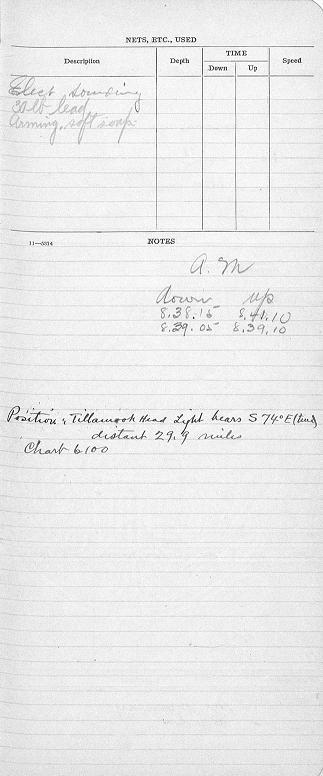 NETS, ETC., USED
Description Depth TIME Speed
Down Up
Elect sounding
30 lb lead
Arming, soft soap
11—5314 NOTES
A. M
down up
8.38.15 8.41.10
8.39.05 8.39.10
Position, Tillamook Head Light bears S 74° E (true)
distant 29.9 miles
Chart 6100